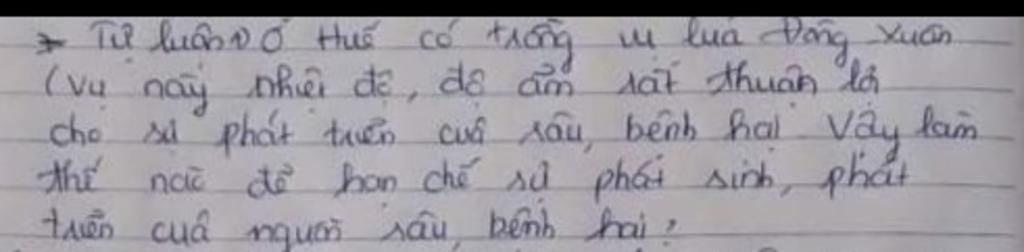 → Tự luận 1) Ở Huế có trồng vụ lúa Đông xuân
(vụ này nhiệt độ, độ ẩm rất thuận lợi
cho sự phát triển của sâu, bệnh hại Vậy làm
thế nào để hạn chế sự phát sinh, phát
triển của nguồn sâu, bệnh hại?